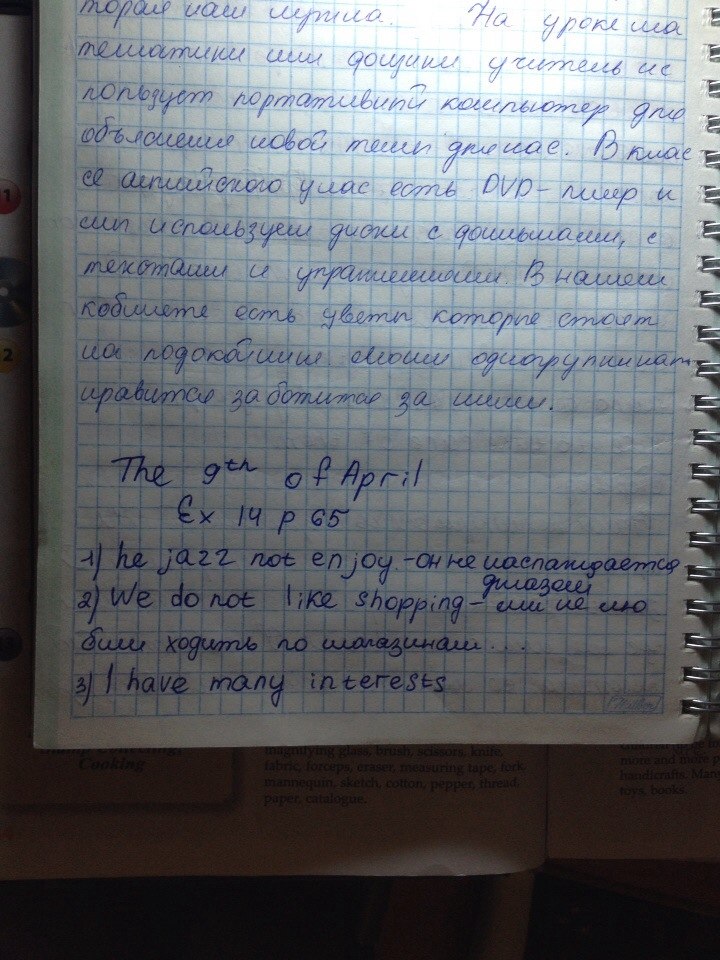 торая нам нужна. На уроке ма
тематики или физики учитель ис
пользует портативный компьютер для
объяснения новой темы для нас. В клас
се английского у нас есть DVD-плеер и
мы используем диски с фильмами, с
текстами и упражнениями. В нашем
кабинете есть цветы которые стоят
на подоконник. Моим одногрупникам
нравится заботится за ними.
The 9th of April
Ex 14 p 65
1) he jazz not enjoy.-он не наслаждается
джазом
2) We do not like shopping - ми не лю
били ходить по магазинам...
3) I have many interests
Cooking
magnifying glass, brush, scissors, knife,
fabric, forceps, eraser, measuring tape, fork,
mannequin, sketch, cotton, pepper, thread,
paper, catalogue.
more and more p
handicrafts. Man
toys, books.
1
2